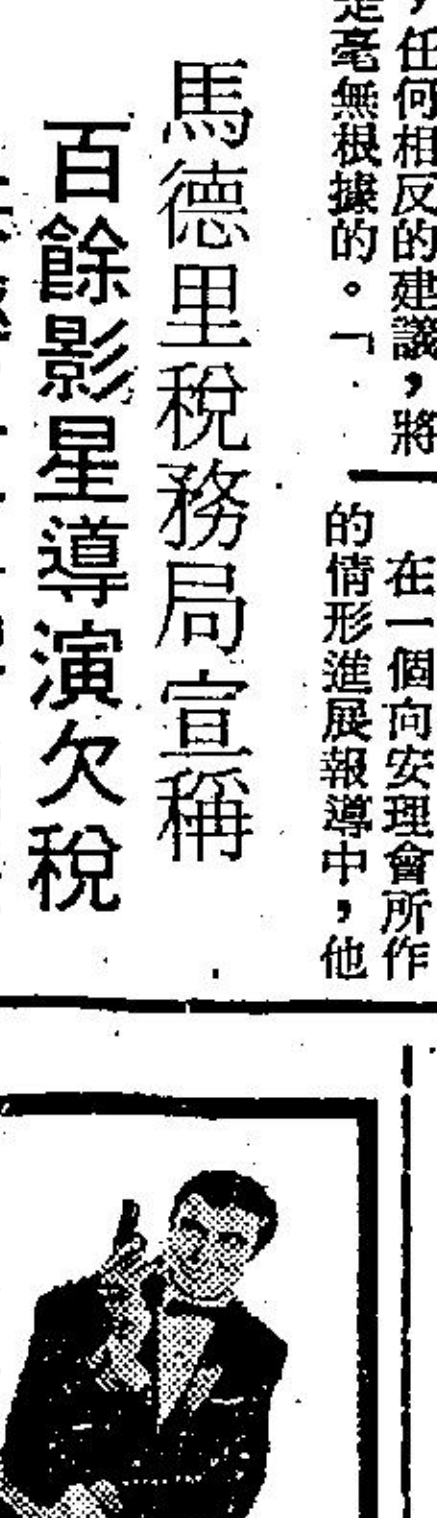 ，任何相反的建議，將
是毫無根據的。「
在一個向安理會所作
的情形進展報導中，他
馬德里稅務局宣稱
百餘影星導演欠稅